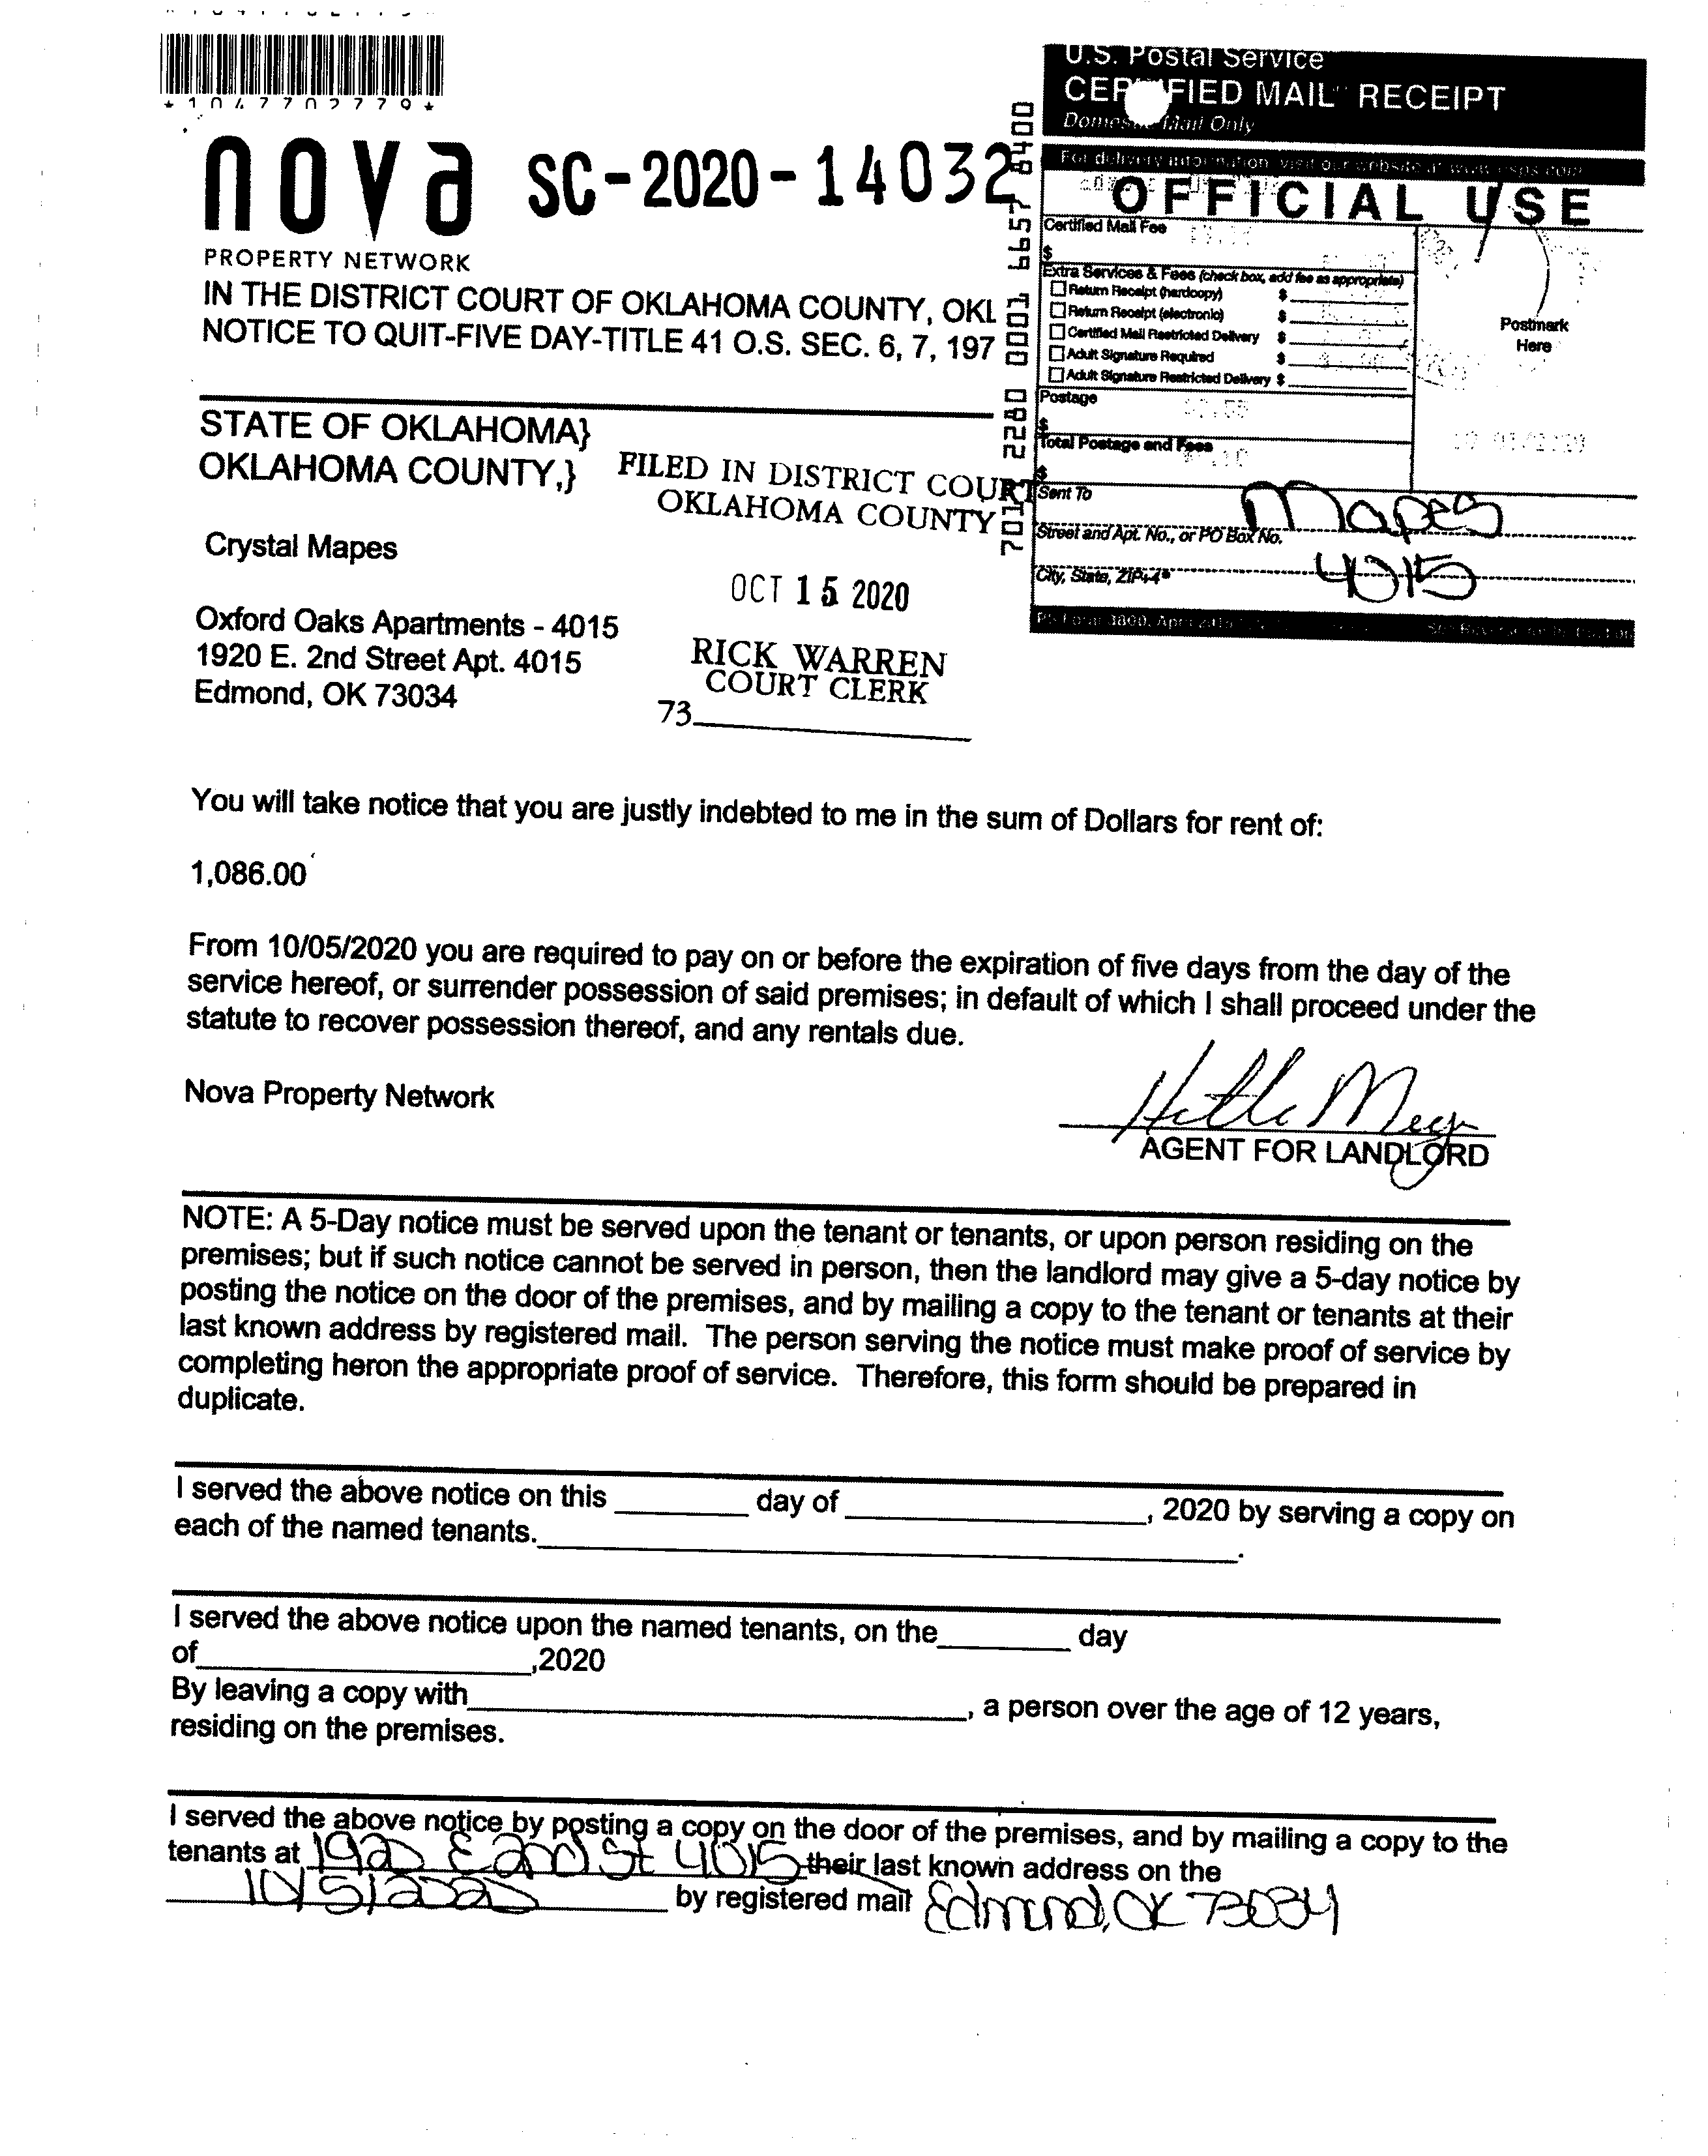 *1047702779*
nova
PROPERTY NETWORK
SC-2020-14032
IN THE DISTRICT COURT OF OKLAHOMA COUNTY, OKL
NOTICE TO QUIT-FIVE DAY-TITLE 41 O.S. SEC. 6, 7, 197
U.S. Postal Service
CERTIFIED MAIL RECEIPT
Domestic Mail Only
For delivery information, visit our website at www.usps.com
OFFICIAL USE
Certified Mail Fee
$
Extra Services & Fees (check box, add fee as appropriate)
Return Receipt (hardcopy) $
Return Receipt (electronic) $
Certified Mail Restricted Delivery $
Adult Signature Required $
Adult Signature Restricted Delivery $
Postmark
Here
Postage
$
Total Postage and Fees
$
Sent To Mapes
Street and Apt. No., or PO Box No.
4015
City, State, ZIP+4
PS Form 3800, April 2015
STATE OF OKLAHOMA}
OKLAHOMA COUNTY,}
FILED IN DISTRICT COURT
OKLAHOMA COUNTY
OCT 15 2020
RICK WARREN
COURT CLERK
73
Crystal Mapes
Oxford Oaks Apartments - 4015
1920 E. 2nd Street Apt. 4015
Edmond, OK 73034
You will take notice that you are justly indebted to me in the sum of Dollars for rent of:
1,086.00
From 10/05/2020 you are required to pay on or before the expiration of five days from the day of the
service hereof, or surrender possession of said premises; in default of which I shall proceed under the
statute to recover possession thereof, and any rentals due.
Nova Property Network
AGENT FOR LANDLORD
NOTE: A 5-Day notice must be served upon the tenant or tenants, or upon person residing on the
premises; but if such notice cannot be served in person, then the landlord may give a 5-day notice by
posting the notice on the door of the premises, and by mailing a copy to the tenant or tenants at their
last known address by registered mail. The person serving the notice must make proof of service by
completing heron the appropriate proof of service. Therefore, this form should be prepared in
duplicate.
I served the above notice on this ________ day of ________________, 2020 by serving a copy on
each of the named tenants.________________.
I served the above notice upon the named tenants, on the________ day
of________________,2020
By leaving a copy with________________, a person over the age of 12 years,
residing on the premises.
I served the above notice by posting a copy on the door of the premises, and by mailing a copy to the
tenants at 1920 E 2nd St 4015 their last known address on the
10/5/2020 by registered mail Edmond, OK 73034